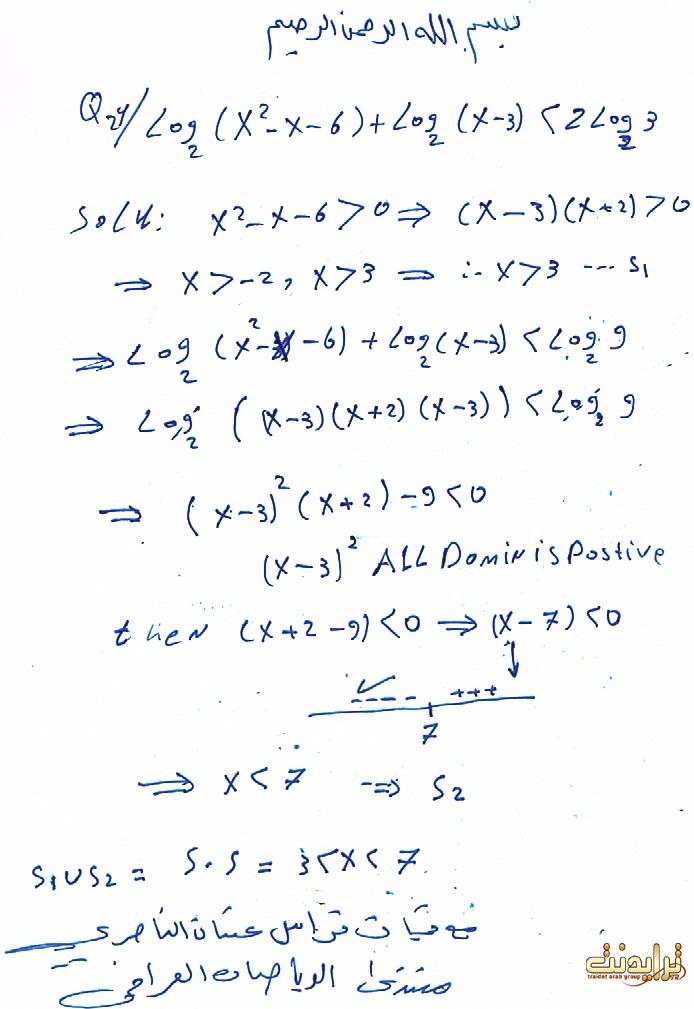 بسم الله الرحمن الرحيم
Q2/ Log₂ (x²-x-6) + Log₂ (x-3) < 2 Log₂ 3
Solu: x²-x-6>0 ⇒ (x-3)(x+2)>0
⇒ x>-2, x>3 ⇒ ∴ x>3 --- S₁
⇒ Log₂ (x²-x-6) + Log₂ (x-3) < Log₂ 9
⇒ Log₂ ( (x-3)(x+2) (x-3) ) < Log₂ 9
⇒ (x-3)² (x+2) -9<0
(x-3)² ALL Domin is Postive
then (x+2-9)<0 ⇒ (x-7)<0
---- +++
7
⇒ x<7 ⇒ S₂
S₁∪S₂ = S.S = 3<x<7
فراس
منتدى الرياضيات العراقي
ترايدنت
traidet arab group